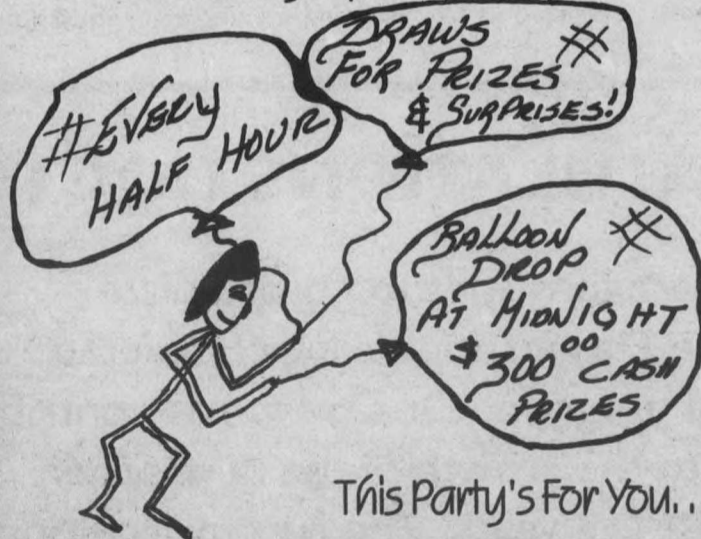 #EVERY
HALF HOUR
DRAWS #
FOR PRIZES
& SURPRISES!
BALLOON #
DROP
AT MIDNIGHT
$300.00 CASH
PRIZES
This Party's For You..